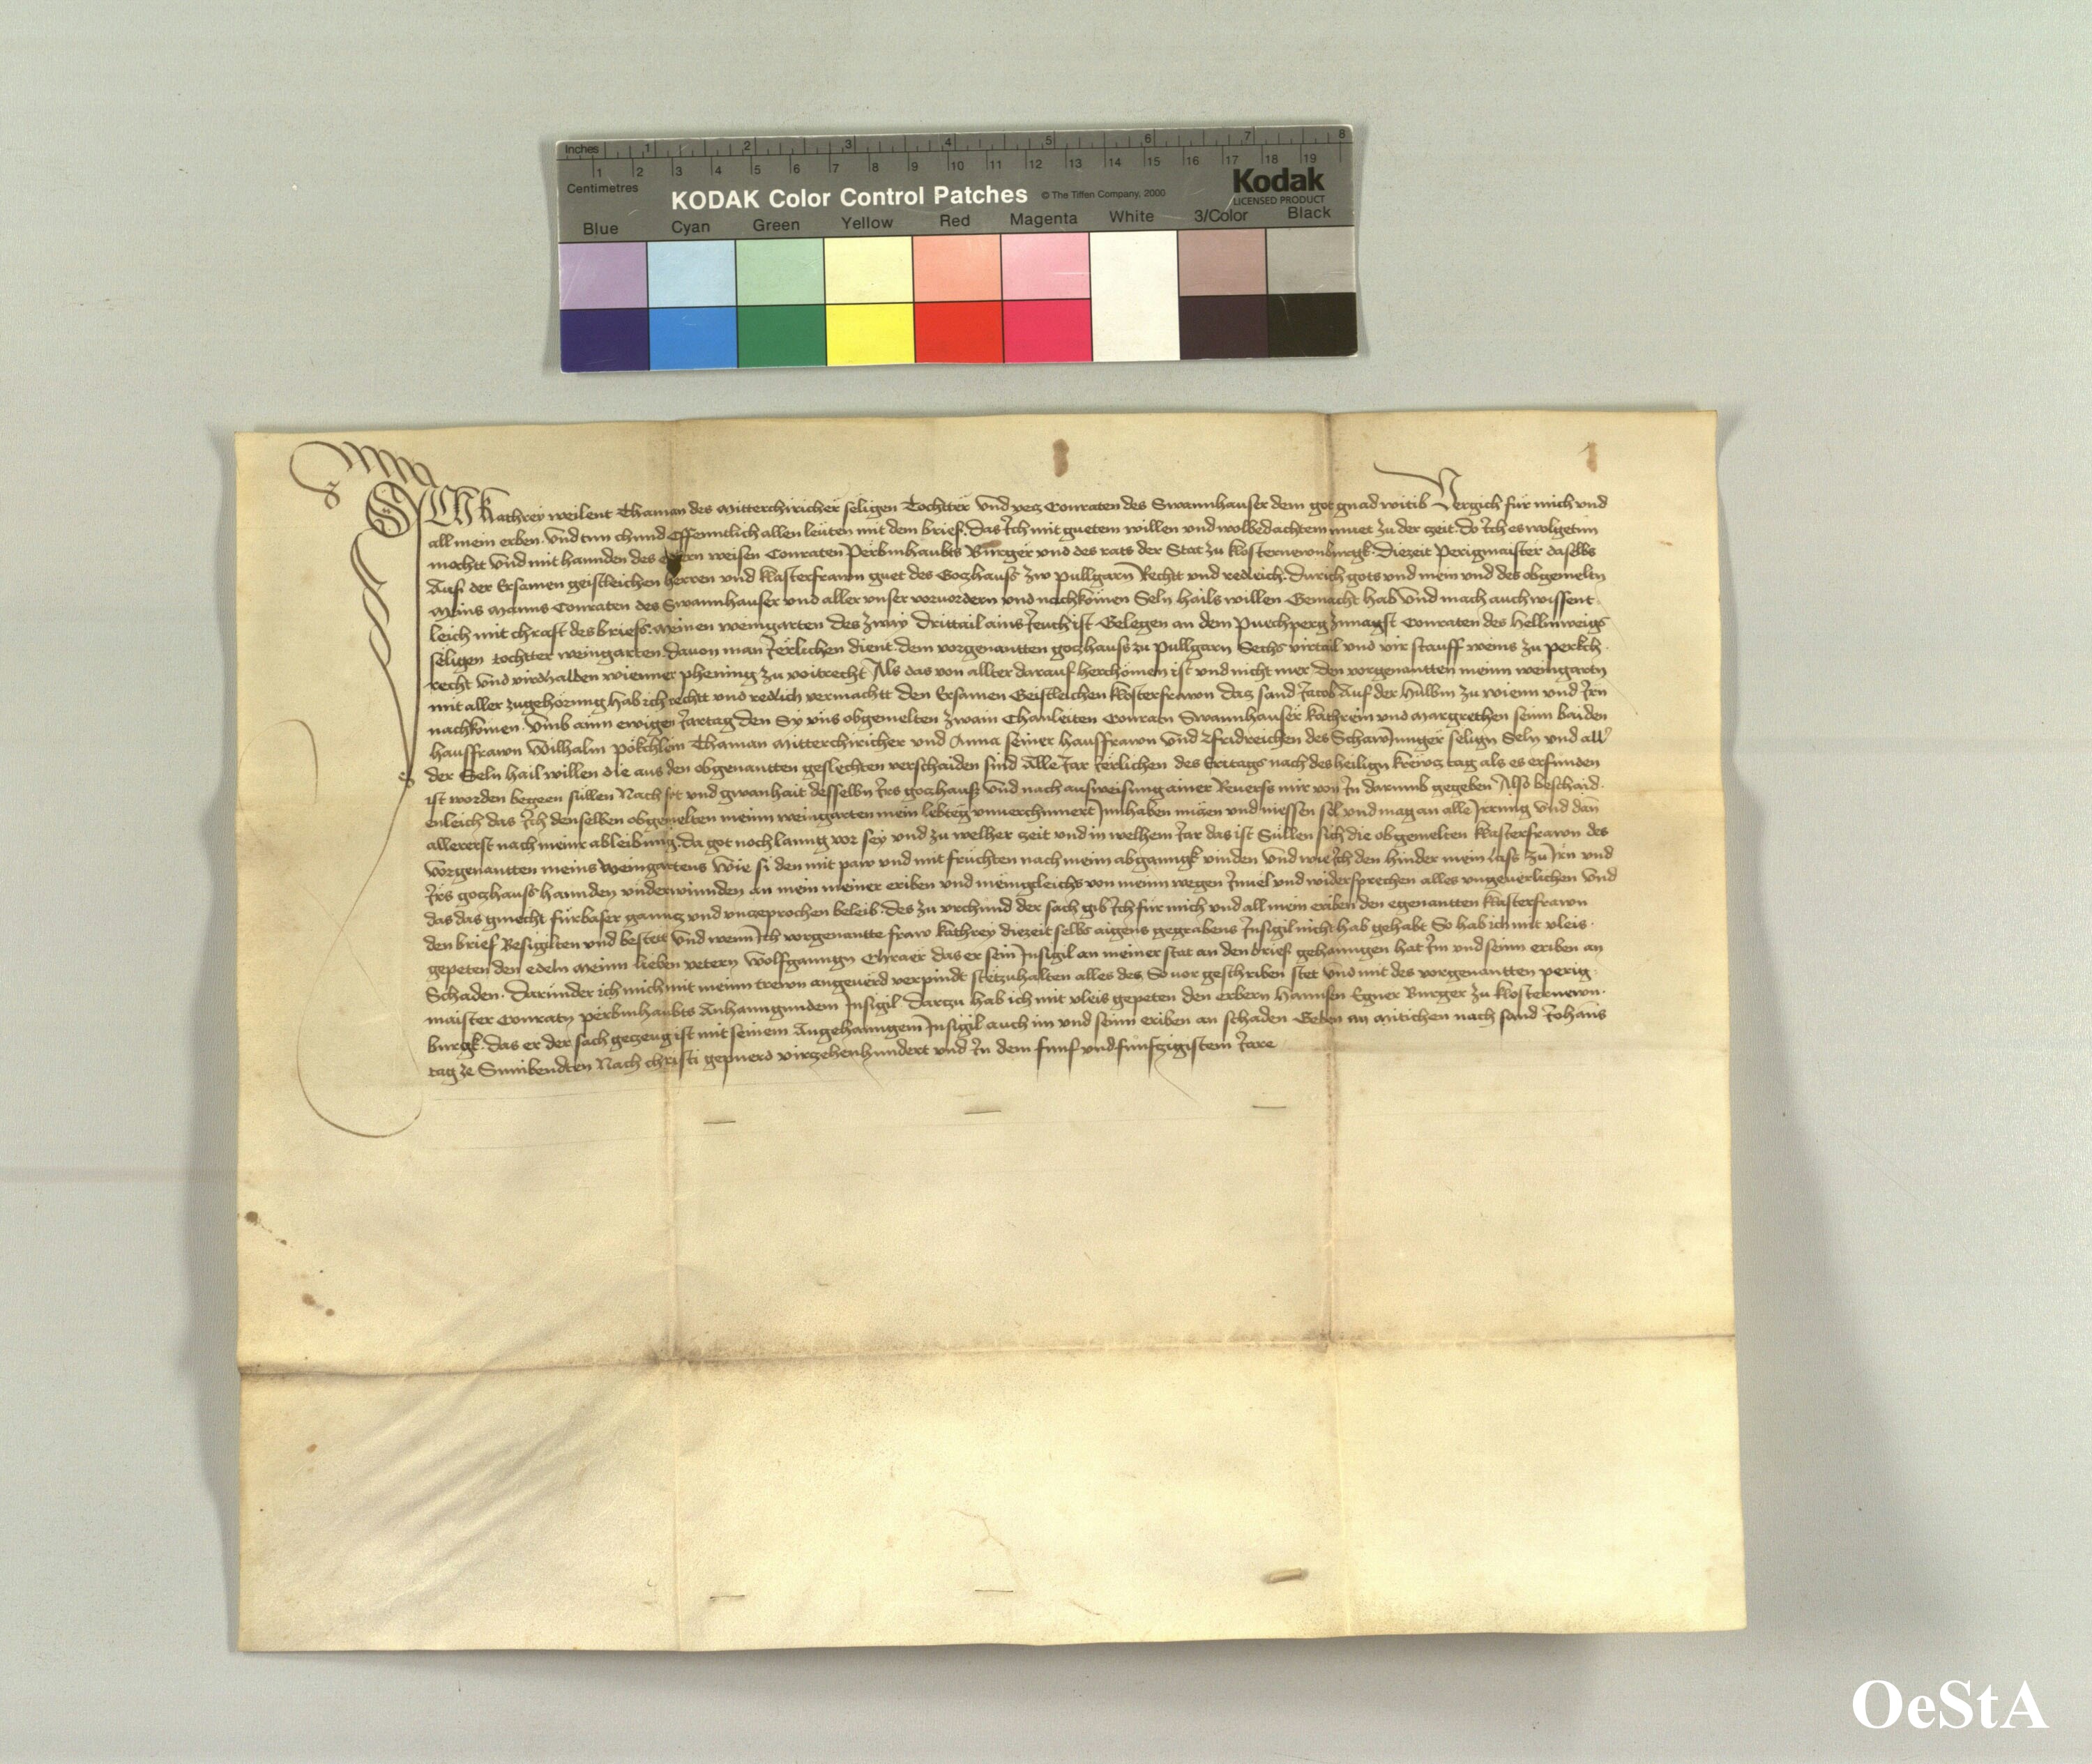 Inches 1 2 3 4 5 6 7 8
1 2 3 4 5 6 7 8 9 10 11 12 13 14 15 16 17 18 19
Centimetres
KODAK Color Control Patches © The Tiffen Company, 2000 Kodak
LICENSED PRODUCT
Blue Cyan Green Yellow Red Magenta White 3/Color Black
ICH Kathrey weilent Thaman des Mitterchiricher seligen Tochtter Vnd yecz Conraten des Swannhauser dem got gnad witib Vergich für mich vnd
all mein erben. Vnd tun chund Offenntlich allen leüten mit dem brief. Das Ich mit guetem willen vnd wolbedachtem muet zu der zeit. do Ich es wolgetun
mochtt Vnd mit hannden des erbern weisen Conraten Perbmhaubts Burger vnd des rats der Stat zu Klosternewnburgk. Diezeit Perigmaister daselbs
Auf der Ersamen geistleichen herren vnd klasterfrawn guet des Goczhauss zw Pullgarn Rechtt vnd redleich. durich gots vnd mein vnd des obgemeltn
meins manns Conraten des Swannhauser vnd aller vnser voruordern vnd nachkomen Seln hails willen Gemacht hab Vnd mach auch wissent
leich mit chraft des briefs. meinen weingarten des zway drittail ains Jeuch ist Gelegen an dem Puechperg zunagst Conraten des Hellmweigs
seligen tochtter weingarten. dauon man Jerlichen dient. dem vorgenantten goczhauss zu Pullgarn Sechs virtail vnd vir stauff weins zu perkch
recht Vnd virdhalben wienner phening zu voitrecht Als das von allter darauf herchomen ist vnd nicht mer den vorgenantten meinn weingartn
mit aller zugehorung hab ich rechtt vnd redlich vermachtt den Ersamen Geistleichen klosterfrawn Dacz sand Jacob Auf der Hulbm zu wienn vnd Irn
nachkomen. Vmb ainn ewigen Jartag den Sy vns obgemelten zwain Chanleiten Conratn Swannhauser Kathrein vnd Margrethen seinn baiden
hauffrawn Wilhalm Pökchlein Thaman Mitterchiricher vnd Anna seiner hauffrawn Vnd fridreichen des Schawnnger selign Seln vnd all
der Seln hail willen die aus den obgenantten geslechten verschaiden sind Alle Jar Jerlichen des Eritags nach des heilign krewcz tag als es erfunden
ist worden begeen sullen Nach sit vnd gwanhait desselbn Irs goczhauss Vnd nach ausweisung ainer Reuerfs mir von In darumb gegeben Also beschaid
enleich das Ich denselben obgemelten meinn weingarten mein lebteg vnuerchumert Innhaben nüczen vnd niessen sol vnd mag an alle Irrung Vnd dan
allererst nach meinr ableibung. da got noch lanng vor sey vnd zu welher zeit vnd in welhem Jar das ist Süllen sich die obgemelten klasterfrawn des
vorgenantten meins weingartens Wie si den mit paw vnd mit fruchten nach meim abganngk vinden Vnd wie Ich den hinder mein lass zu Irn vnd
Irs goczhauss hannden vnderwinnden an mein meiner eriben vnd menigleichs von meinn wegen Inuel vnd widersprechen alles vngeuerlichen Vnd
das das gmecht fürbaser gannz vnd vnzeprochen beleib. Des zu vrchund der sach gib Ich für mich vnd all mein eriben den egenantten klasterfrawn
den brief Besigilten vnd bestett Vnd wenn Ich vorgenantte fraw Kathrey diezeit selbs aigens gegrabens Insigil nicht hab gehabt So hab ich mit vleis
gepeten den edeln meinn lieben vetern Wolfganngn Chraer das er sein Insigil an meiner stat an den brief gehanngen hat Im vnd seinn eriben an
Schaden. Darunder ich mich mit meinn trewn angeuerd verpindt stetzuhalten alles des So uor geschriben stet Vnd mit des vorgenantten perig
maister Conratn Perbmhaubts Anhanngundem Insigil. Darczu hab ich mit vleis gepeten den erbern Hannsen Egner Burger zu Klosternewn
burgk. das er der sach gezeug ist mit seinem Angehanngem Insigil auch im vnd seinn eriben an schaden Geben an Mitichen nach sand Johanns
tag ze Sunibendten Nach christi gepuerd virzehenhundert vnd In dem funf vnd funfzigistem Jare
OeStA